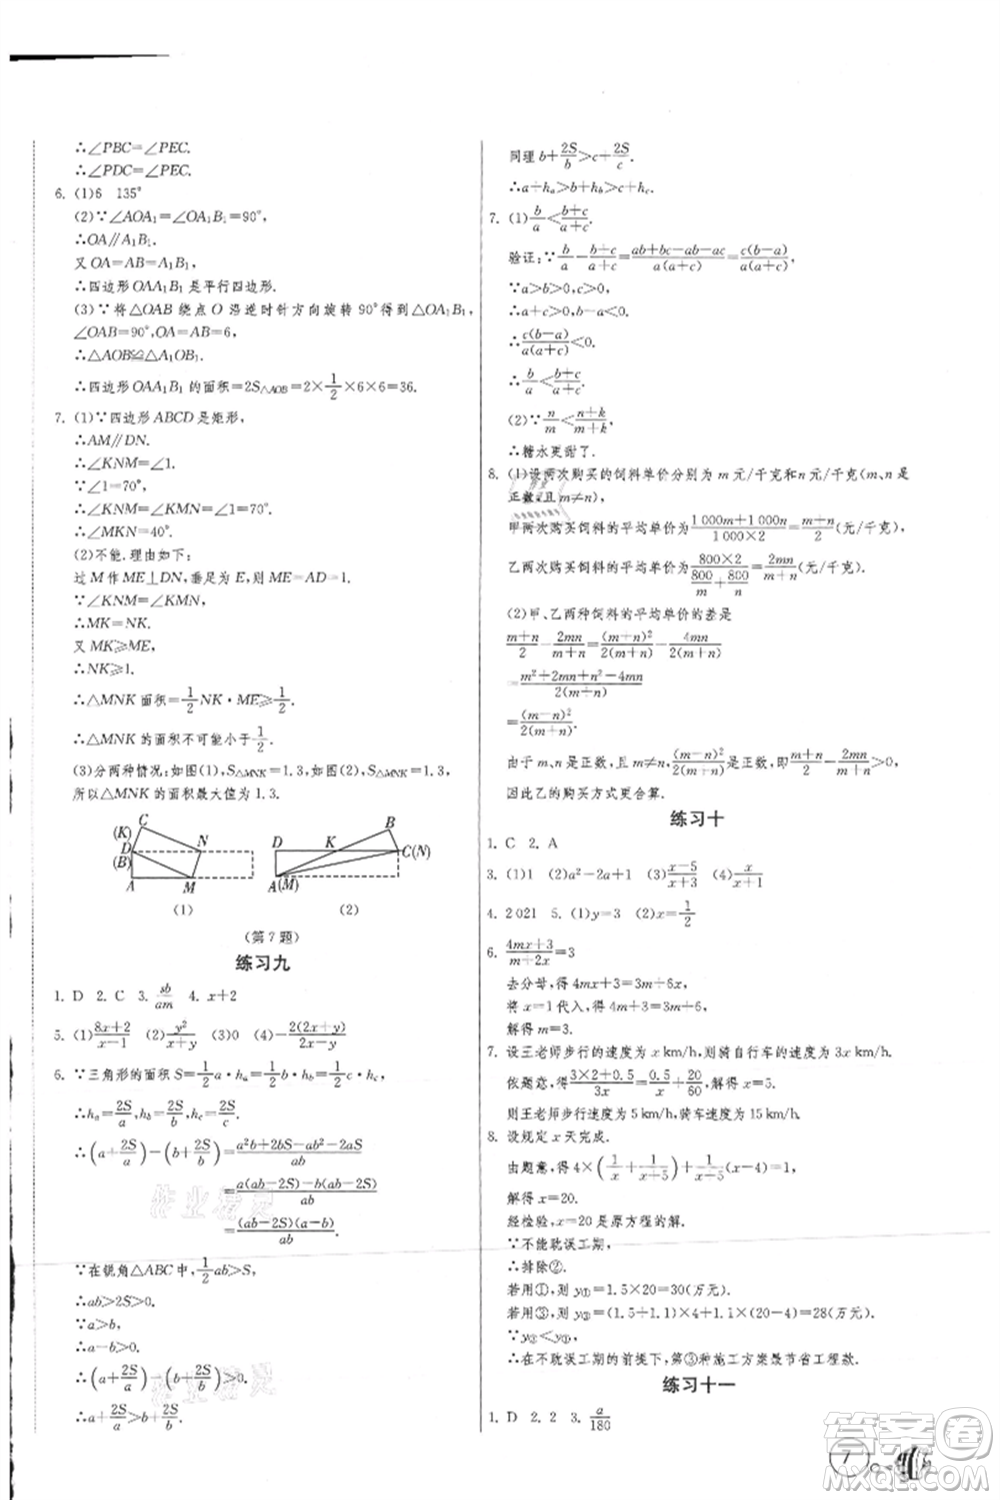 ∴∠PBC=∠PEC.
∴∠PDC=∠PEC.
6. (1)6 135°
(2)∵∠AOA₁=∠OA₁B₁=90°,
∴OA∥A₁B₁.
又 OA=AB=A₁B₁,
∴四边形 OAA₁B₁ 是平行四边形.
(3)∵将△OAB 绕点 O 沿逆时针方向旋转 90°得到△OA₁B₁,
∠OAB=90°,OA=AB=6,
∴△AOB≌△A₁OB₁.
∴四边形 OAA₁B₁ 的面积=2S△AOB=2×1/2×6×6=36.
7. (1)∵四边形 ABCD 是矩形,
∴AM∥DN.
∴∠KNM=∠1.
∵∠1=70°,
∴∠KNM=∠KMN=∠1=70°.
∴∠MKN=40°.
(2)不能.理由如下:
过 M 作 ME⊥DN,垂足为 E,则 ME=AD=1.
∵∠KNM=∠KMN,
∴MK=NK.
又 MK≥ME,
∴NK≥1.
∴△MNK 面积=1/2 NK·ME≥1/2.
∴△MNK 的面积不可能小于1/2.
(3)分两种情况:如图(1),S△MNK=1.3,如图(2),S△MNK=1.3,
所以△MNK 的面积最大值为 1.3.
(K) C D N (B) A M
B D K C(N) A(M)
(1) (2)
(第 7 题)
练习九
1. D 2. C 3. sb/am 4. x+2
5. (1)(8x+2)/(x-1) (2)y²/(x+y) (3)0 (4)-2(2x+y)/(2x-y)
6. ∵三角形的面积 S=1/2 a·hₐ=1/2 b·h_b=1/2 c·h_c,
∴hₐ=2S/a,h_b=2S/b,h_c=2S/c.
∴(a+2S/a)-(b+2S/b)=(a²b+2bS-ab²-2aS)/ab
=(a(ab-2S)-b(ab-2S))/ab
=((ab-2S)(a-b))/ab.
∵在锐角△ABC 中,1/2 ab>S,
∴ab>2S>0.
∵a>b,
∴a-b>0.
∴(a+2S/a)-(b+2S/b)>0.
∴a+2S/a>b+2S/b.
同理 b+2S/b>c+2S/c.
∴a+hₐ>b+h_b>c+h_c.
7. (1)b/a<(b+c)/(a+c).
验证:∵b/a-(b+c)/(a+c)=(ab+bc-ab-ac)/(a(a+c))=(c(b-a))/(a(a+c)),
∵a>b>0,c>0,
∴a+c>0,b-a<0.
∴(c(b-a))/(a(a+c))<0.
∴b/a<(b+c)/(a+c).
(2)∵n/m<(n+k)/(m+k),
∴糖水更甜了.
8. (1)设两次购买的饲料单价分别为 m 元/千克和 n 元/千克(m、n 是
正数,且 m≠n),
甲两次购买饲料的平均单价为(1 000m+1 000n)/(1 000×2)=(m+n)/2(元/千克).
乙两次购买饲料的平均单价为(800×2)/(800/m+800/n)=2mn/(m+n)(元/千克).
(2)甲、乙两种饲料的平均单价的差是
(m+n)/2-2mn/(m+n)=(m+n)²/(2(m+n))-4mn/(2(m+n))
=(m²+2mn+n²-4mn)/(2(m+n))
=(m-n)²/(2(m+n)).
由于 m、n 是正数,且 m≠n,(m-n)²/(2(m+n))也是正数,即(m+n)/2-2mn/(m+n)>0,
因此乙的购买方式更合算.
练习十
1. C 2. A
3. (1)1 (2)a²-2a+1 (3)(x-5)/(x+3) (4)x/(x-1)
4. 2 021 5. (1)y=3 (2)x=1/2
6. (4mx+3)/(m+2x)=3
去分母,得 4mx+3=3m+6x.
将 x=1 代入,得 4m+3=3m+6.
解得 m=3.
7. 设王老师步行的速度为 x km/h,则骑自行车的速度为 3x km/h.
依题意,得(3×2+0.5)/3x=0.5/x+20/60,解得 x=5.
则王老师步行的速度为 5 km/h,骑车速度为 15 km/h.
8. 设规定 x 天完成.
由题意,得 4×(1/x+1/(x+5))+1/(x+5)(x-4)=1,
解得 x=20.
经检验,x=20 是原方程的解.
∵不能耽误工期,
∴排除②.
若用①,则 y①=1.5×20=30(万元).
若用③,则 y③=(1.5+1.1)×4+1.1×(20-4)=28(万元).
∵y③<y①,
∴在不耽误工期的前提下,第③种施工方案最节省工程款.
练习十一
1. D 2. 2 3. a/180
7
答案圈
MXQE.COM
作业精灵
作业精灵